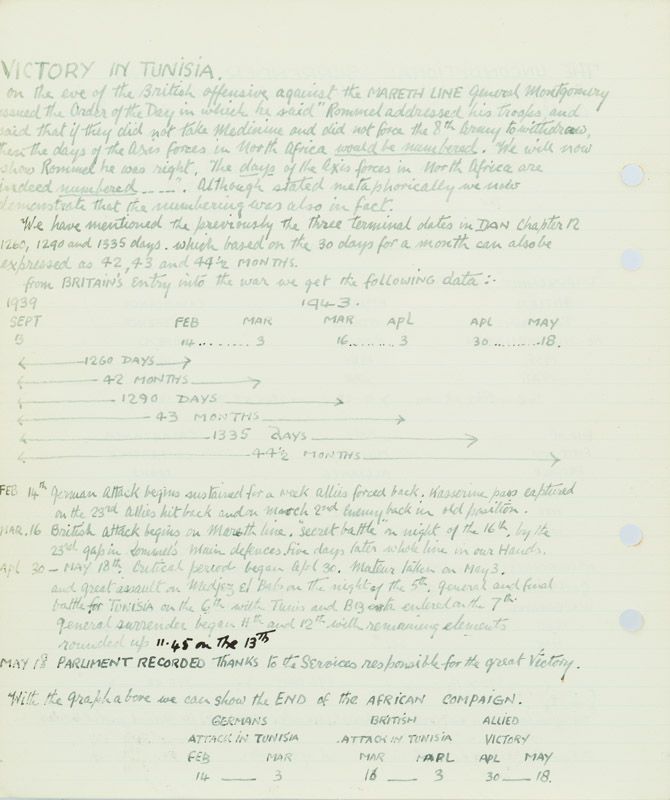 VICTORY IN TUNISIA.
on the eve of the British offensive against the MARETH LINE General Montgomery
issued the Order of the Day in which he said "Rommel addressed his troops and
said that if they did not take Medinine and did not force the 8th Army to withdraw,
then the days of the Axis forces in North Africa would be numbered. We will now
show Rommel he was right. The days of the Axis forces in North Africa are
indeed numbered ----". Although stated metaphorically we now
demonstrate that the numbering was also in fact.
We have mentioned the previously the three terminal dates in DAN Chapter 12
1260, 1290 and 1335 days. which based on the 30 days for a month can also be
expressed as 42, 43 and 44½ MONTHS.
from BRITAIN'S Entry into the war we get the following data:-
1939 1943.
SEPT FEB MAR MAR APL APL MAY
3 14......... 3 16......... 3 30.........18.
1260 DAYS
42 MONTHS
1290 DAYS
43 MONTHS
1335 DAYS
44½ MONTHS
FEB 14th German attack begins sustained for a week allies forced back. Kasserine pass captured
on the 23rd allies hit back and on march 2nd Enemy back in old position.
MAR. 16 British attack begins on Mareth line. "Secret battle" on night of the 16th, by the
23rd gap in Rommel's main defences. Five days later whole line in our Hands.
APL 30 - MAY 18th. Critical period began Apl 30. Mateur taken on May 3.
and great assault on Medjez El Bab on the night of the 5th. general and final
battle for TUNISIA on the 6th with Tunis and entered on the 7th
General surrender began 11th and 12th with remaining elements
rounded up 11.45 on the 13th
MAY 18 PARLIMENT RECORDED THANKS to the Services responsible for the great Victory.
With the graph above we can show the END of the AFRICAN COMPAIGN.
GERMANS BRITISH ALLIED
ATTACK IN TUNISIA ATTACK IN TUNISIA VICTORY
FEB MAR MAR APL APL MAY
14 ___ 3 16 ___ 3 30 ___ 18.